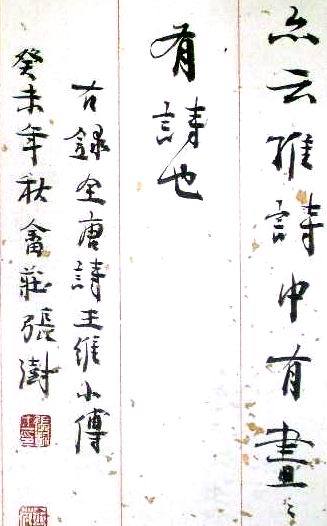 亦云維詩中有畫々
有詩也
右錄全唐詩王維小傳
癸未年秋莊張澍